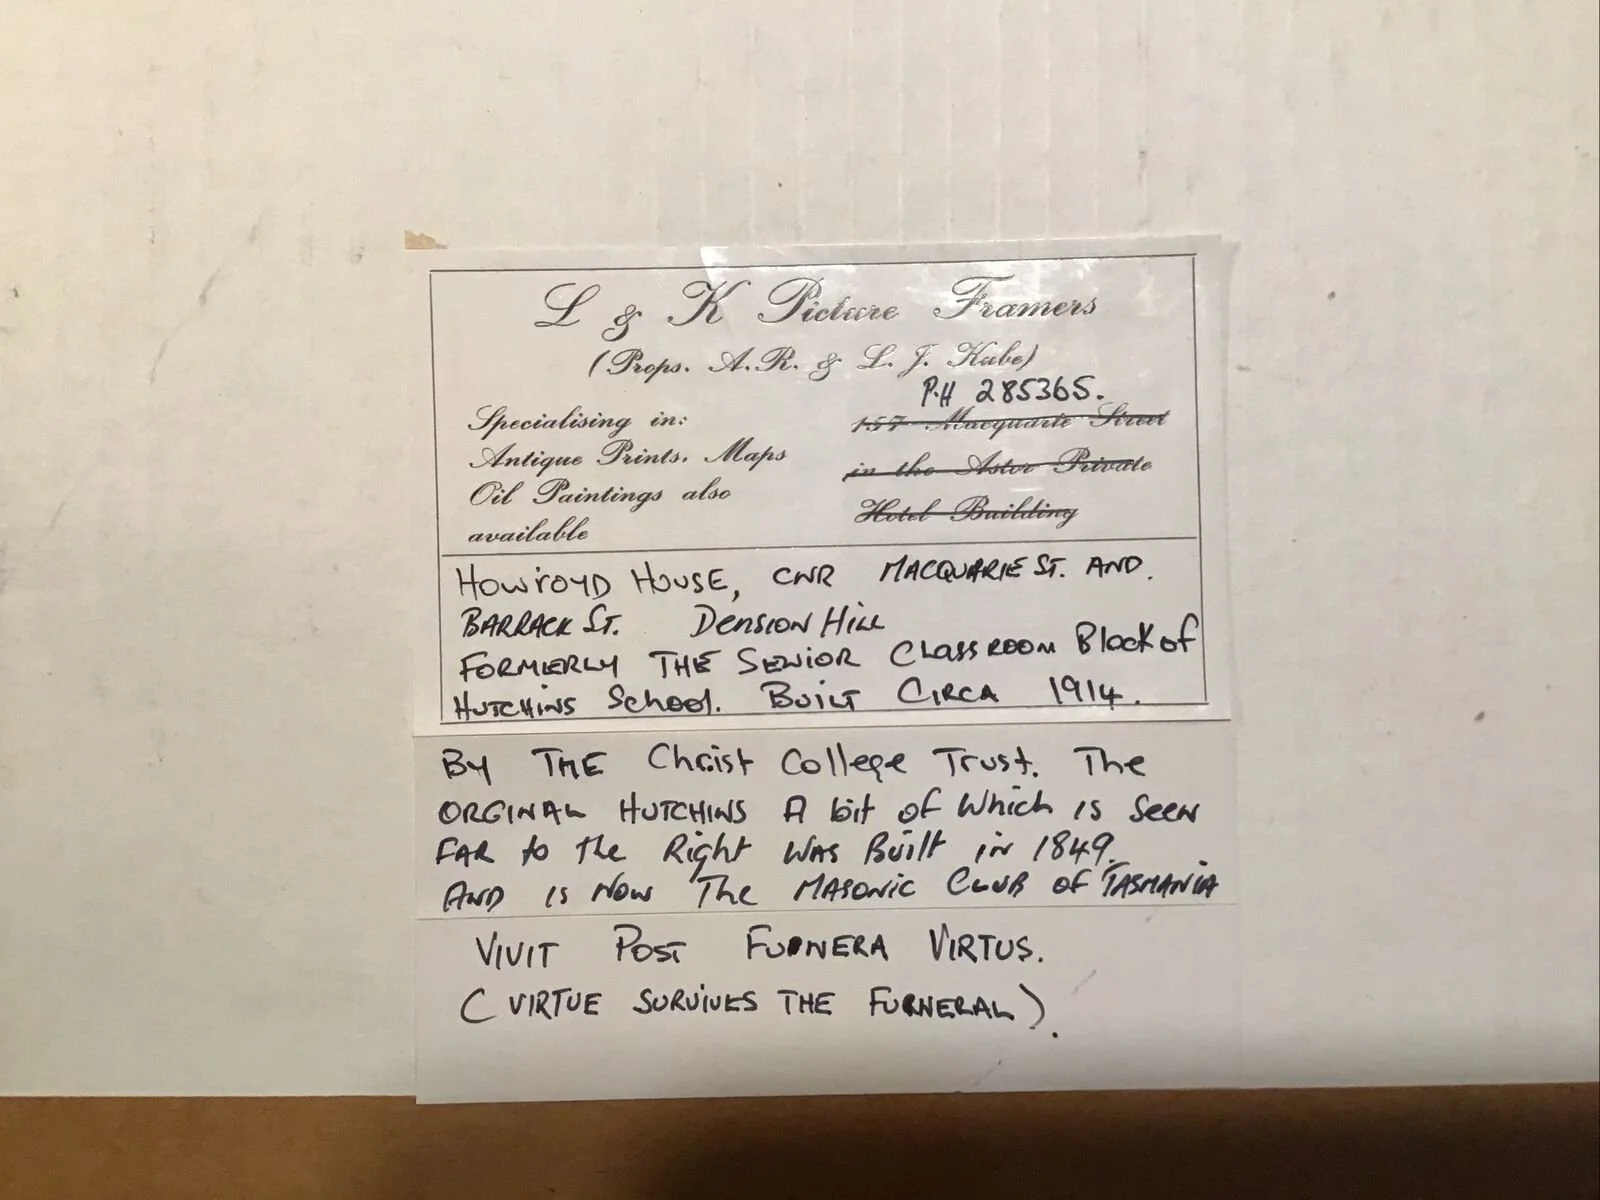 L & K Picture Framers
(Props. A.R. & L. J. Kube)
P.H 285365.
Specialising in:
Antique Prints, Maps
Oil Paintings also
available
157 Macquarie Street
in the Astor Private
Hotel Building
HOWROYD HOUSE, CNR MACQUARIE ST. AND.
BARRACK ST. DENSION HILL
FORMERLY THE SENIOR CLASSROOM BLOCK OF
HUTCHINS SCHOOL. BUILT CIRCA 1914.
BY THE Christ College Trust. The
ORGINAL HUTCHINS A bit of Which is Seen
FAR to the Right WAS Built in 1849.
AND is Now The MASONIC CLUB OF TASMANIA
VIVIT POST FURNERA VIRTUS.
(VIRTUE SURVIVES THE FURNERAL).